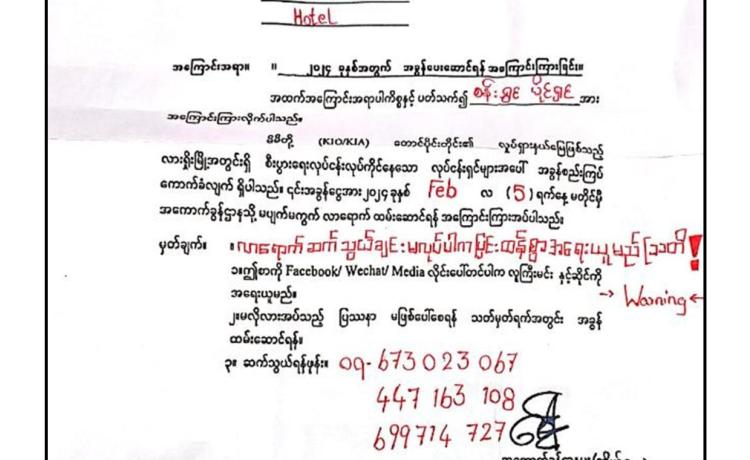 Hotel
အကြောင်းအရာ။ ။ ၂၀၂၄ ခုနှစ်အတွက် အခွန်ပေးဆောင်ရန် အကြောင်းကြားခြင်း။
အထက်အကြောင်းအရာပါကိစ္စနှင့် ပတ်သက်၍ စန်းရွှင် ပိုင်ရှင် အား
အကြောင်းကြားလိုက်ပါသည်။
မိမိတို့ (KIO/KIA) တောင်ပိုင်းတိုင်း၏ လှုပ်ရှားနယ်မြေဖြစ်သည့်
လားရှိုးမြို့အတွင်းရှိ စီးပွားရေးလုပ်ငန်းလုပ်ကိုင်နေသော လုပ်ငန်းရှင်များအပေါ် အခွန်စည်းကြပ်
ကောက်ခံလျက် ရှိပါသည်။ ၎င်းအခွန်ငွေအား ၂၀၂၄ ခုနှစ် Feb လ (5) ရက်နေ့ မတိုင်မှီ
အကောက်ခွန်ဌာနသို့ မပျက်မကွက် လာရောက် ထမ်းဆောင်ရန် အကြောင်းကြားအပ်ပါသည်။
မှတ်ချက်။ ။ လာရောက်ဆက်သွယ်ချင်းမလုပ်ပါက ပြင်းထန်စွာအရေးယူမည် သတိ!
၁။ ဤစာကို Facebook/ Wechat/ Media လိုင်းပေါ်တင်ပါက လူကြီးမင်း နှင့်ဆိုင်ကို
အရေးယူမည်။ → Warning ←
၂။ မလိုလားအပ်သည့် ပြဿနာ မဖြစ်ပေါ်စေရန် သတ်မှတ်ရက်အတွင်း အခွန်
ထမ်းဆောင်ရန်။
၃။ ဆက်သွယ်ရန်ဖုန်း။ 09-673 023 067
447 163 108
699714 727